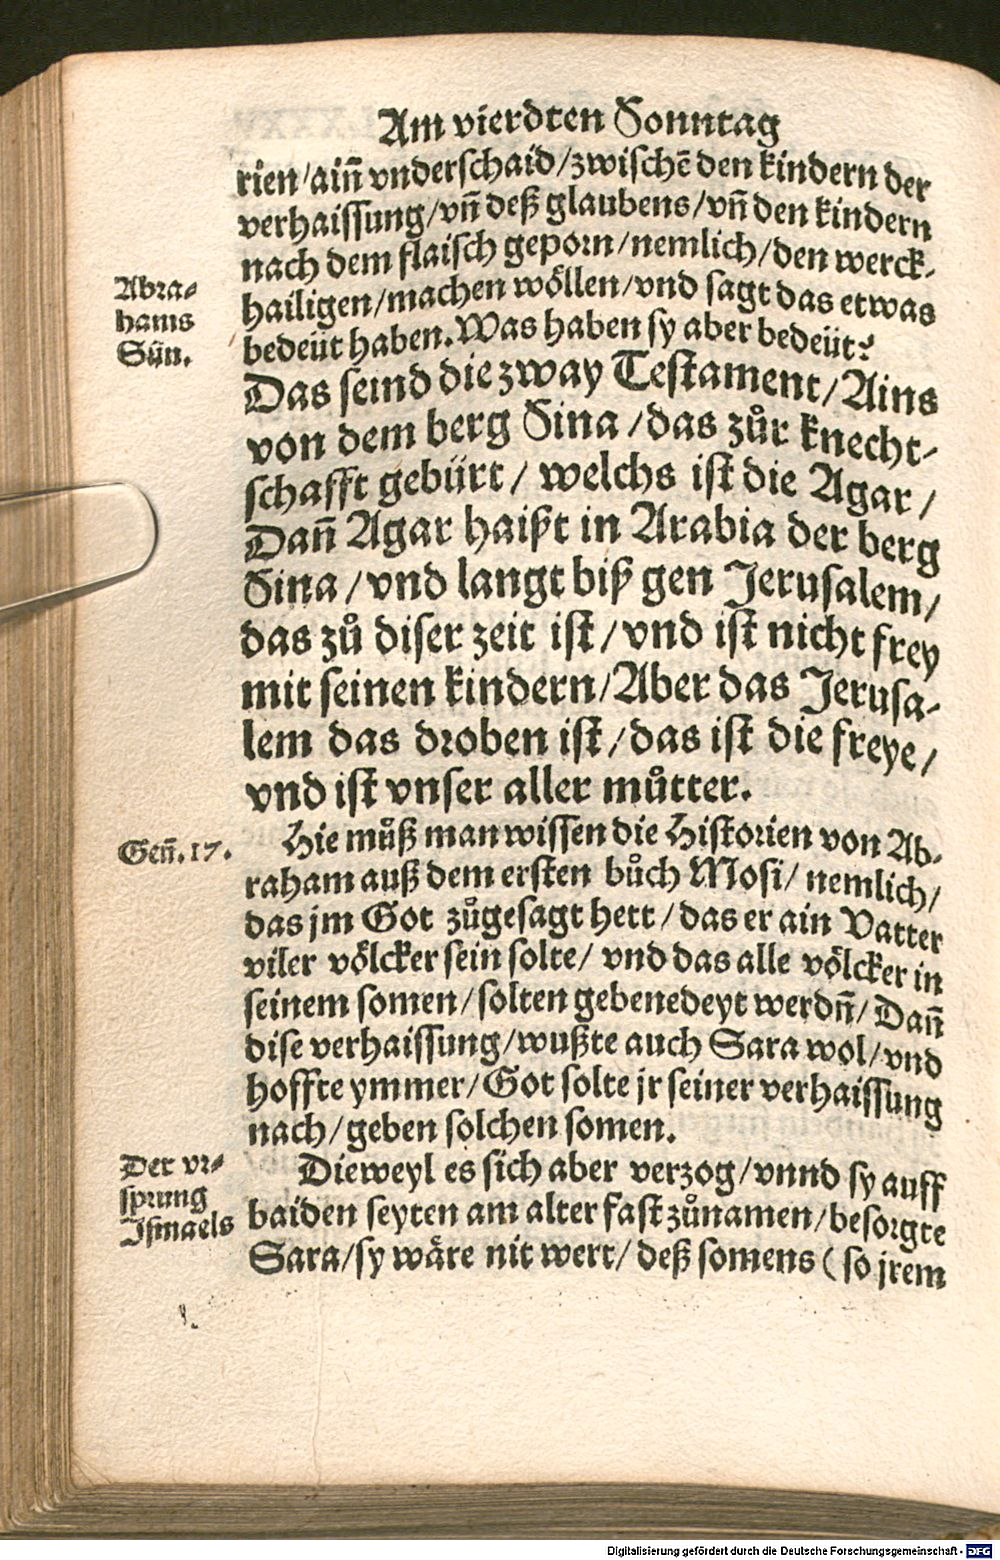 Am vierdten Sonntag
rien/ain̄ vnderschaid/zwischē den kindern der
verhaissung/vn̄ deß glaubens/vn̄ den kindern
nach dem flaisch geporn/nemlich/den werck-
Abra-
hams
Sün.
hailigen/machen wöllen/vnd sagt das etwas
bedeüt haben. Was haben sy aber bedeüt?
Das seind die zway Testament/Ains
von dem berg Sina/das zůr knecht-
schafft gebürt/ welchs ist die Agar/
Dan̄ Agar haißt in Arabia der berg
Sina/vnd langt biß gen Jerusalem/
das zů diser zeit ist/vnd ist nicht frey
mit seinen kindern/Aber das Jerusa-
lem das droben ist/das ist die freye/
vnd ist vnser aller můtter.
Gen̄.17.
Hie můß man wissen die Historien von Ab-
raham auß dem ersten bůch Mosi/ nemlich/
das jm Got zůgesagt hett/das er ain Vatter
viler völcker sein solte/ vnd das alle völcker in
seinem somen/solten gebenedeyt werdn̄/Dan̄
dise verhaissung/wußte auch Sara wol/vnd
hoffte ymmer/Got solte jr seiner verhaissung
nach/geben solchen somen.
Der vr-
sprung
Ismaels
Dieweyl es sich aber verzog/vnnd sy auff
baiden seyten am alter fast zůnamen/besorgte
Sara/sy wäre nit wert/deß somens (so jrem
Digitalisierung gefördert durch die Deutsche Forschungsgemeinschaft - DFG